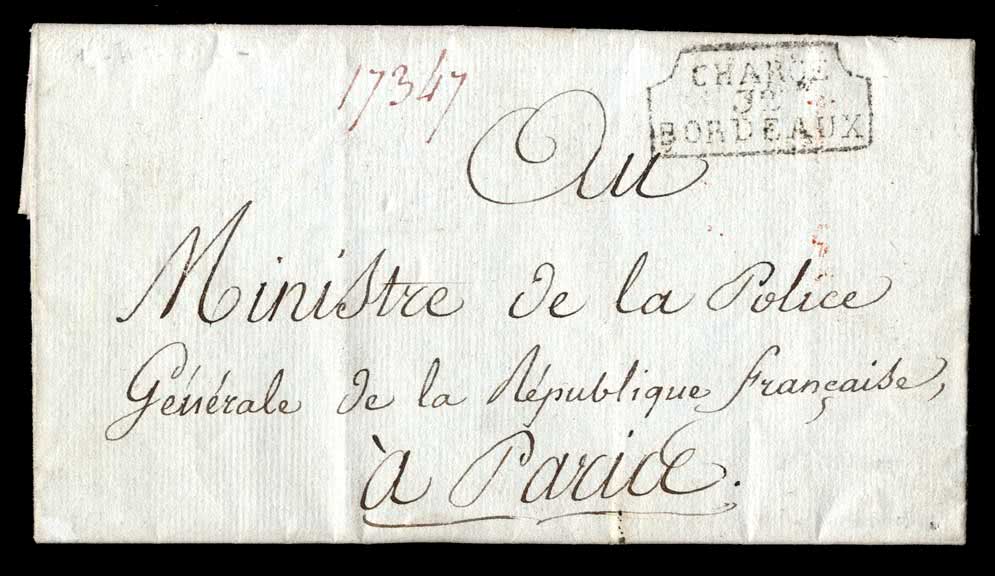 17347
CHARGÉ
32
BORDEAUX
Au
Ministre de la Police
Générale de la République française,
à Paris.